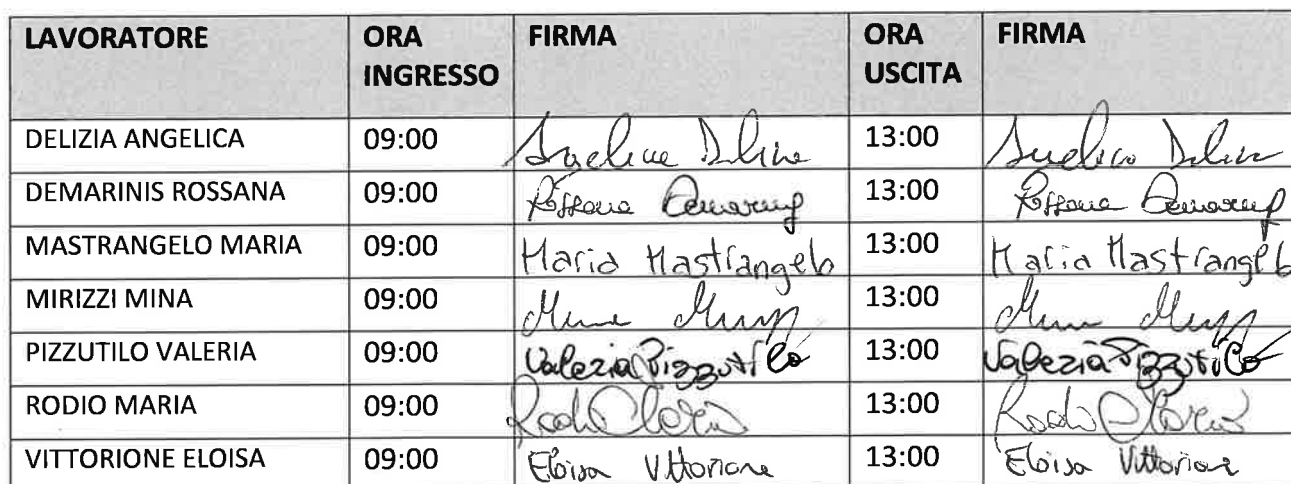 LAVORATORE ORA INGRESSO FIRMA ORA USCITA FIRMA
DELIZIA ANGELICA 09:00 Angelica Delizia 13:00 Angelica Delizia
DEMARINIS ROSSANA 09:00 Rossana Demarinis 13:00 Rossana Demarinis
MASTRANGELO MARIA 09:00 Maria Mastrangelo 13:00 Maria Mastrangelo
MIRIZZI MINA 09:00 13:00
PIZZUTILO VALERIA 09:00 Valeria Pizzutilo 13:00 Valeria Pizzutilo
RODIO MARIA 09:00 13:00
VITTORIONE ELOISA 09:00 Eloisa Vittorione 13:00 Eloisa Vittorione